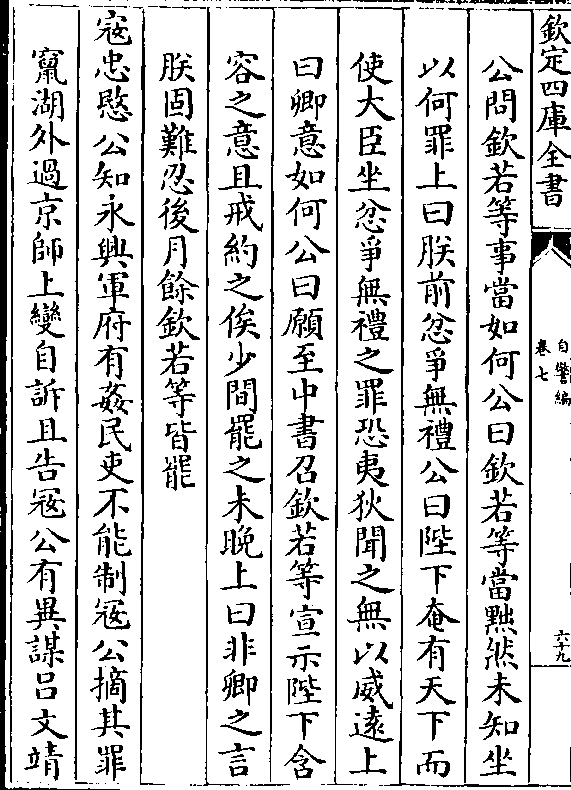 欽定四庫全書
自警編
卷七
六十九
公問欽若等事當如何公曰欽若等當黜然未知坐
以何罪上曰朕前忿爭無禮公曰陛下奄有天下而
使大臣坐忿爭無禮之罪恐夷狄聞之無以威遠上
曰卿意如何公曰願至中書召欽若等宣示陛下含
容之意且戒約之俟少間罷之未晚上曰非卿之言
朕固難忍後月餘欽若等皆罷
寇忠愍公知永興軍府有姦民吏不能制寇公摘其罪
竄湖外過京師上變自訴且告寇公有異謀呂文靖